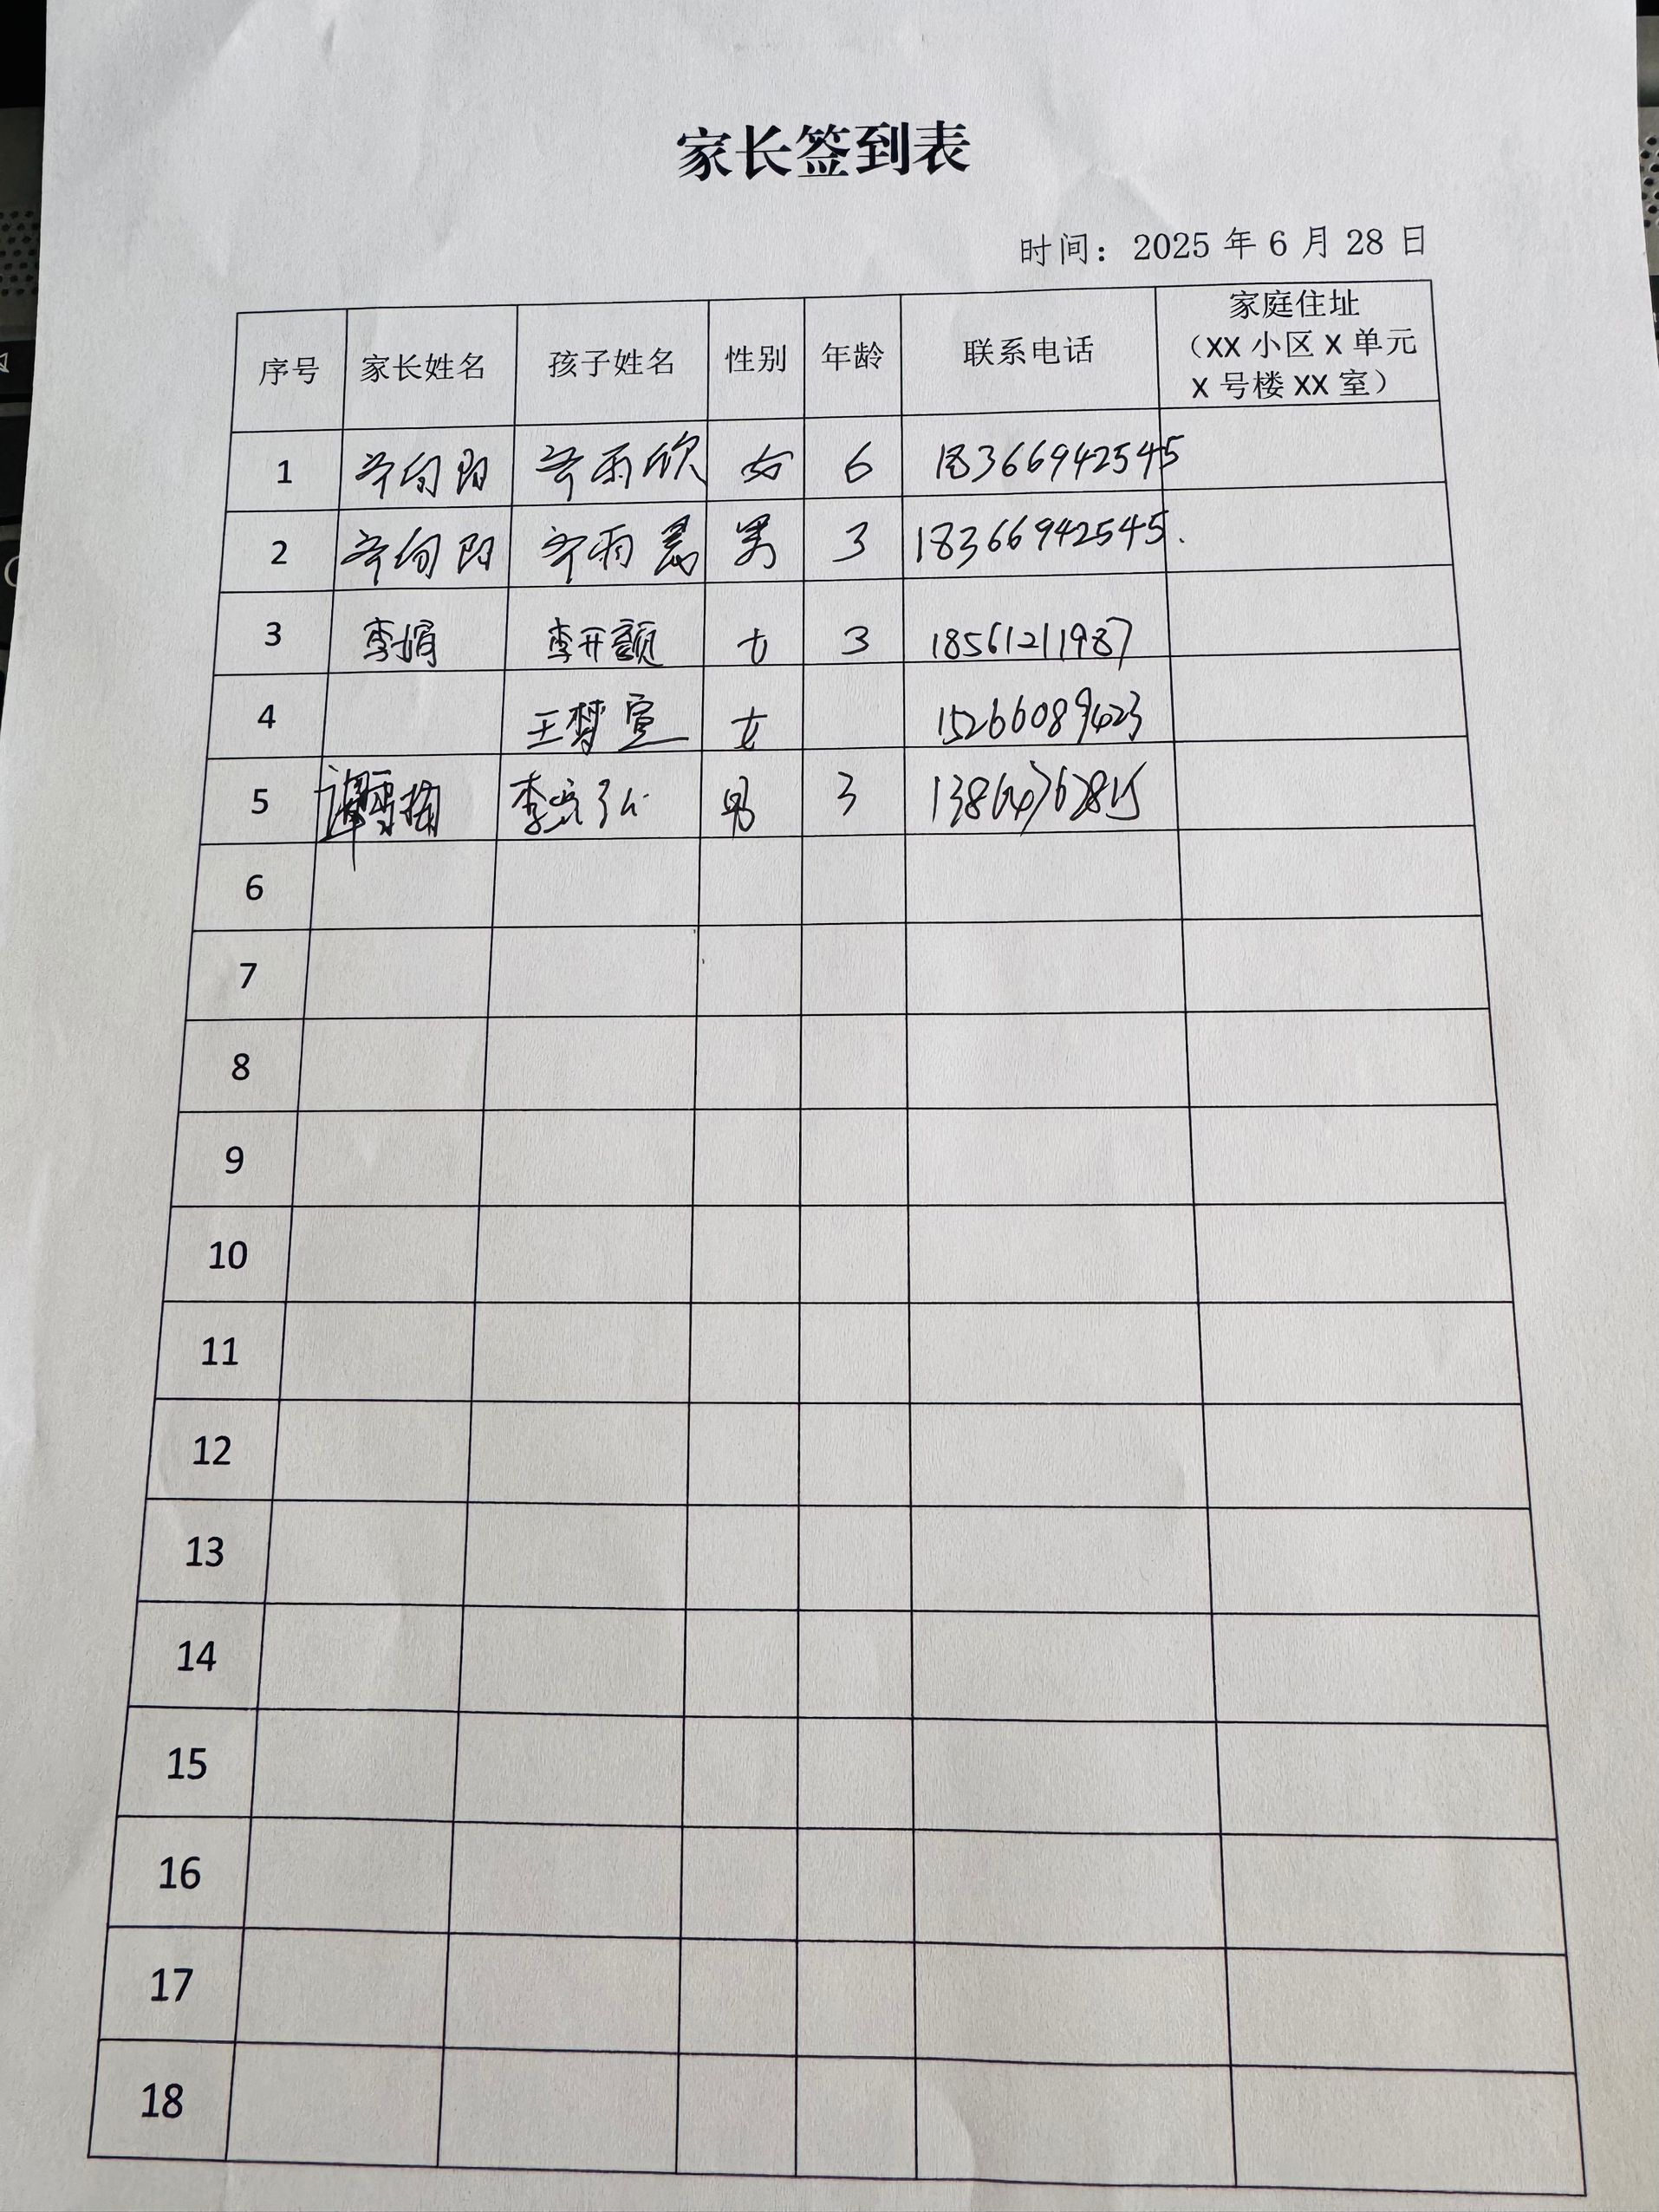 家长签到表
时间：2025 年 6 月 28 日
序号 家长姓名 孩子姓名 性别 年龄 联系电话 家庭住址
（XX 小区 X 单元
X 号楼 XX 室）
1 女 6 18366942545
2 男 3 18366942545.
3 李娟 李开颜 女 3 18561211987
4 王梦宣 女 15266089423
5 男 3
6
7
8
9
10
11
12
13
14
15
16
17
18